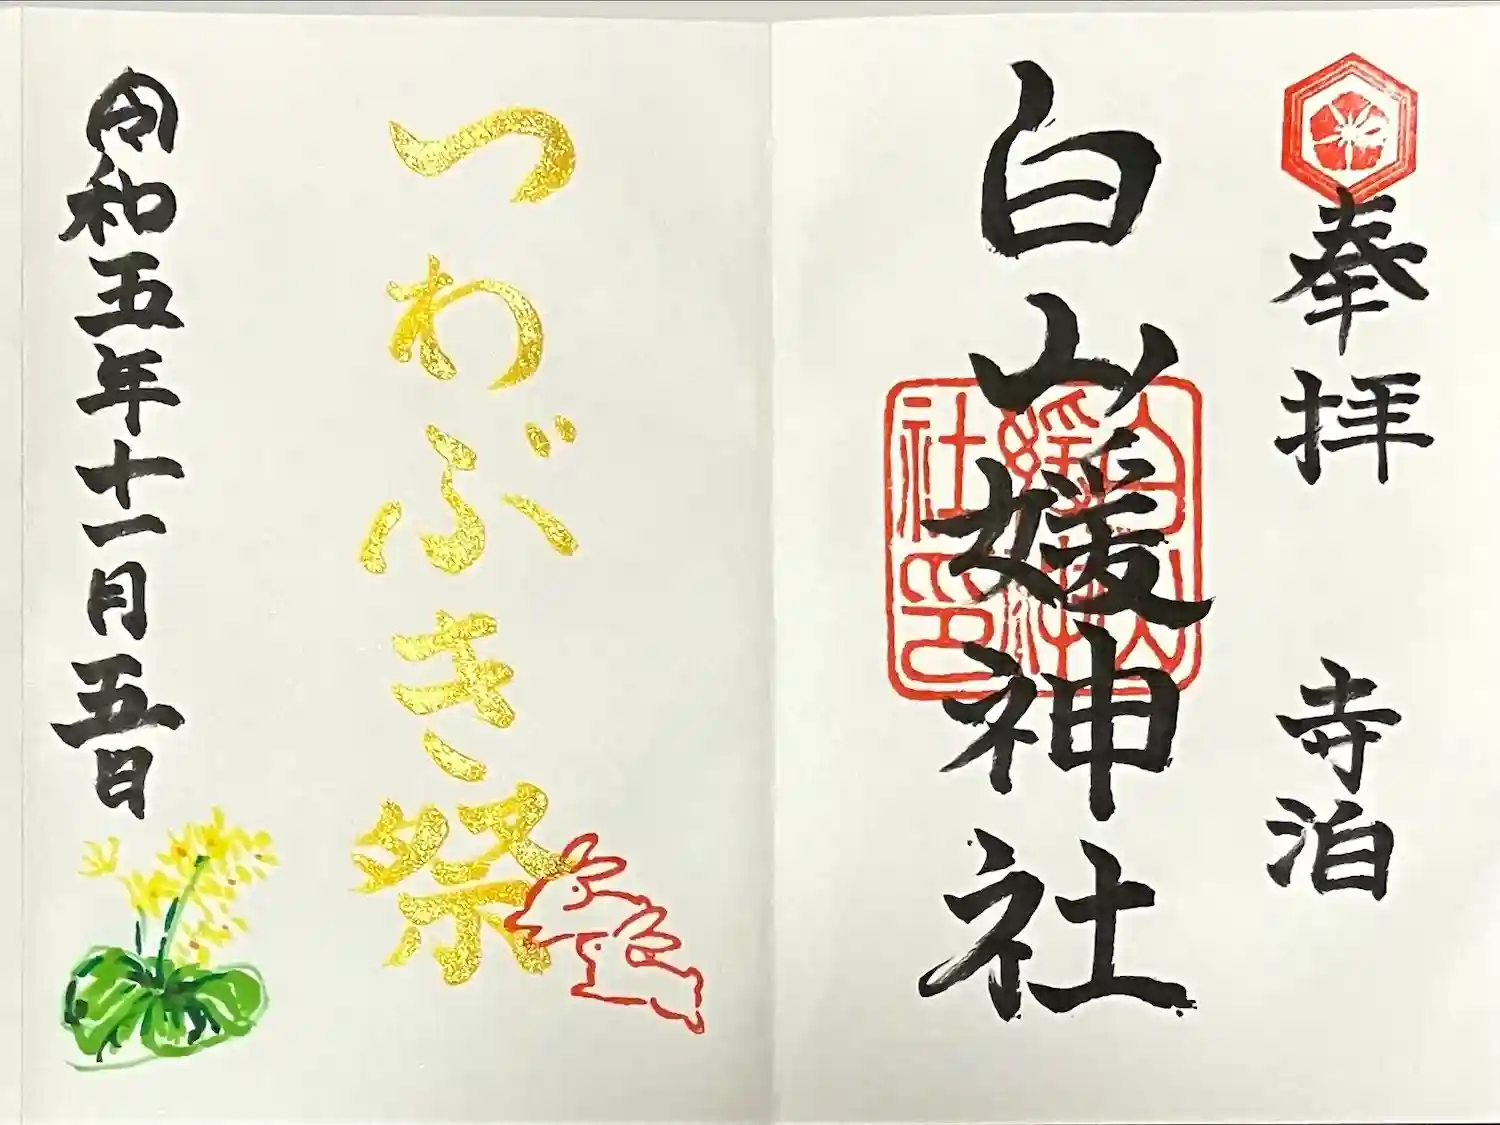 奉拝 寺泊
白山媛神社
白山媛神社印
つわぶき祭
令和五年十一月五日